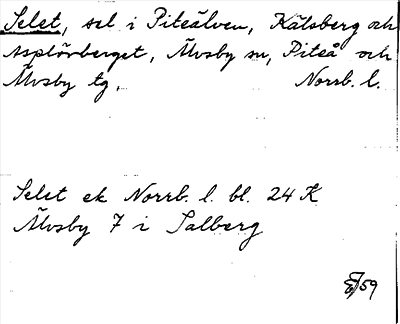 Selet, sel i Piteälven, Kälsberg och
Asplövberget, Älvsby sn, Piteå och
Älvsby tg, Norrb. l.
Selet ek Norrb. l. bl. 24 K
Älvsby 7 i Salberg
/59